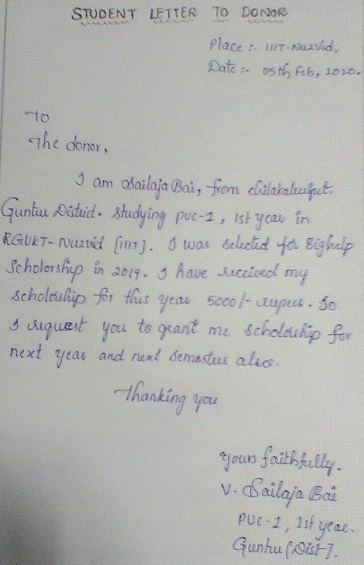 STUDENT LETTER TO DONOR
Place :- IIIT-Nuzvid,
Date :- 05th, Feb, 2020.
To
The donor,
I am Sailaja Bai, from chilakaluripet.
Guntur District. studying PUC-1, 1st year in
RGUKT-Nuzvid [IIIT]. I was selected for Bighelp
Scholorship in 2019. I have received my
scholorship for this year 5000/- rupees. So
I request you to grant me scholorship for
next year and next semesters also.
Thanking you
Yours faithfully.
V. Sailaja Bai
PUC-1, 1st year.
Guntur [Dist].